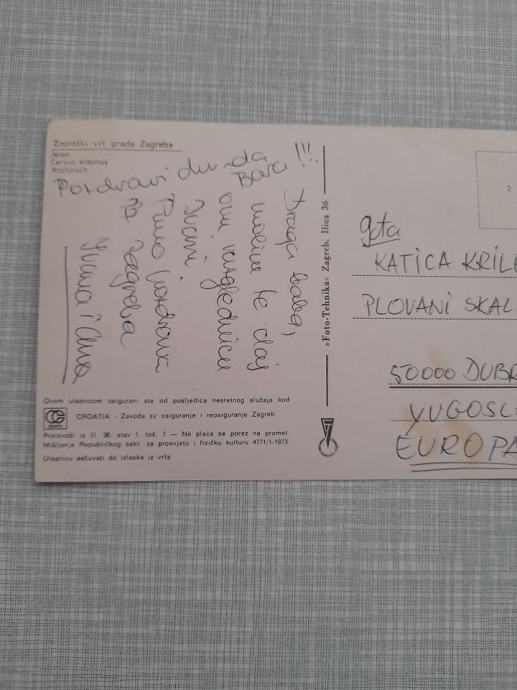 Zoološki vrt grada Zagreba
Jelen
Cervus elaphus
Rothirsch
Pozdravi dunda
Bara !!!
Draga baba,
molim te daj
ovu razglednicu
Ivani.
Puno pozdrava
iz Zagreba
Ivana i Ana
Ovom ulaznicom osigurani ste od posljedica nesretnog slučaja kod
CROATIA - Zavoda za osiguranje i reosiguranje Zagreb
Proizvodi iz čl. 36. stav 1. toč. 7 — Ne plaća se porez na promet.
Mišljenje Republičkog sekr. za prosvjetu i fizičku kulturu 4771/1-1973.
Ulaznicu sačuvati do izlaska iz vrta
»Foto-Tehnika« Zagreb, Ilica 36
2
gđa
KATICA KRILE
PLOVANI SKAL
50000 DUBR
YUGOSL
EUROPA